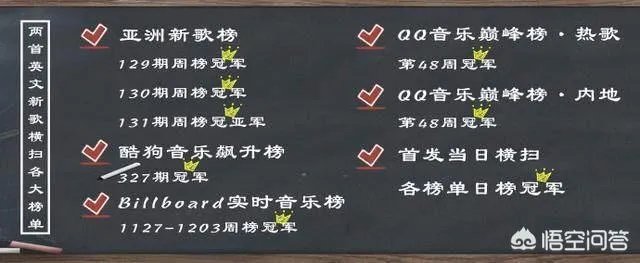 两首英文新歌横扫各大榜单
亚洲新歌榜
129期周榜冠军
130期周榜冠军
131期周榜冠亚军
酷狗音乐飙升榜
327期冠军
Billboard实时音乐榜
1127-1203周榜冠军
QQ音乐巅峰榜·热歌
第48周冠军
QQ音乐巅峰榜·内地
第48周冠军
首发当日横扫
各榜单日榜冠军
悟空问答